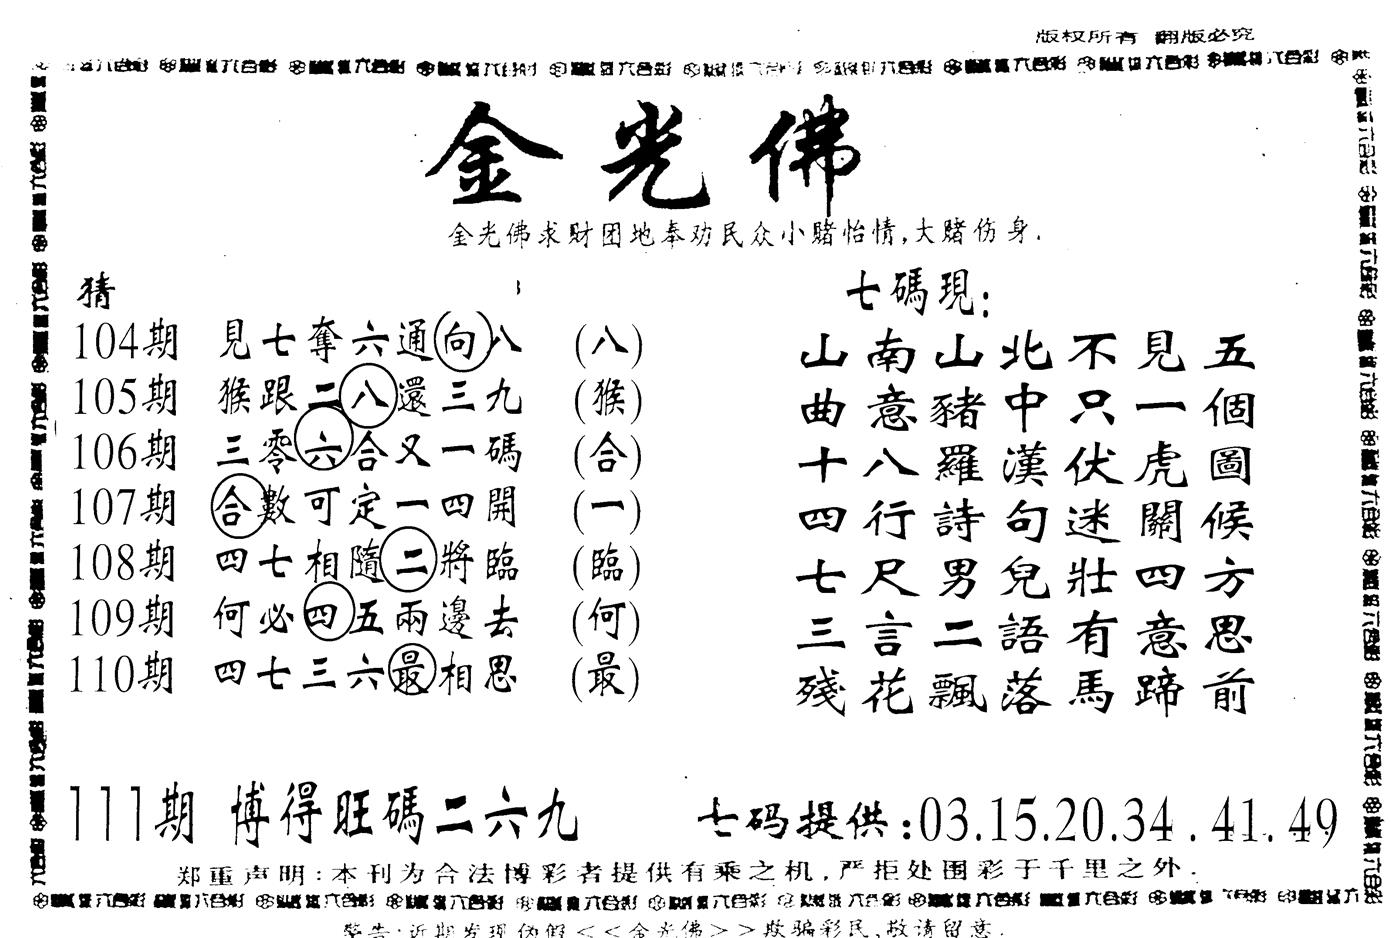 版权所有 翻版必究
金光佛
金光佛求财团地奉劝民众小赌怡情,大赌伤身.
猜
104期 見七奪六通向八 (八)
105期 猴跟二八還三九 (猴)
106期 三零六合又一碼 (合)
107期 合數可定一四開 (一)
108期 四七相隨二將臨 (臨)
109期 何必四五兩邊去 (何)
110期 四七三六最相思 (最)
七碼現:
山南山北不見五
曲意豬中只一個
十八羅漢伏虎圖
四行詩句迷關候
七尺男兒壯四方
三言二語有意思
殘花飄落馬蹄前
111期 博得旺碼二六九
七码提供:03.15.20.34.41.49
郑重声明:本刊为合法博彩者提供有乘之机,严拒处围彩于千里之外.
警告:近期发现伪假<<金光佛>>欺骗彩民,敬请留意.